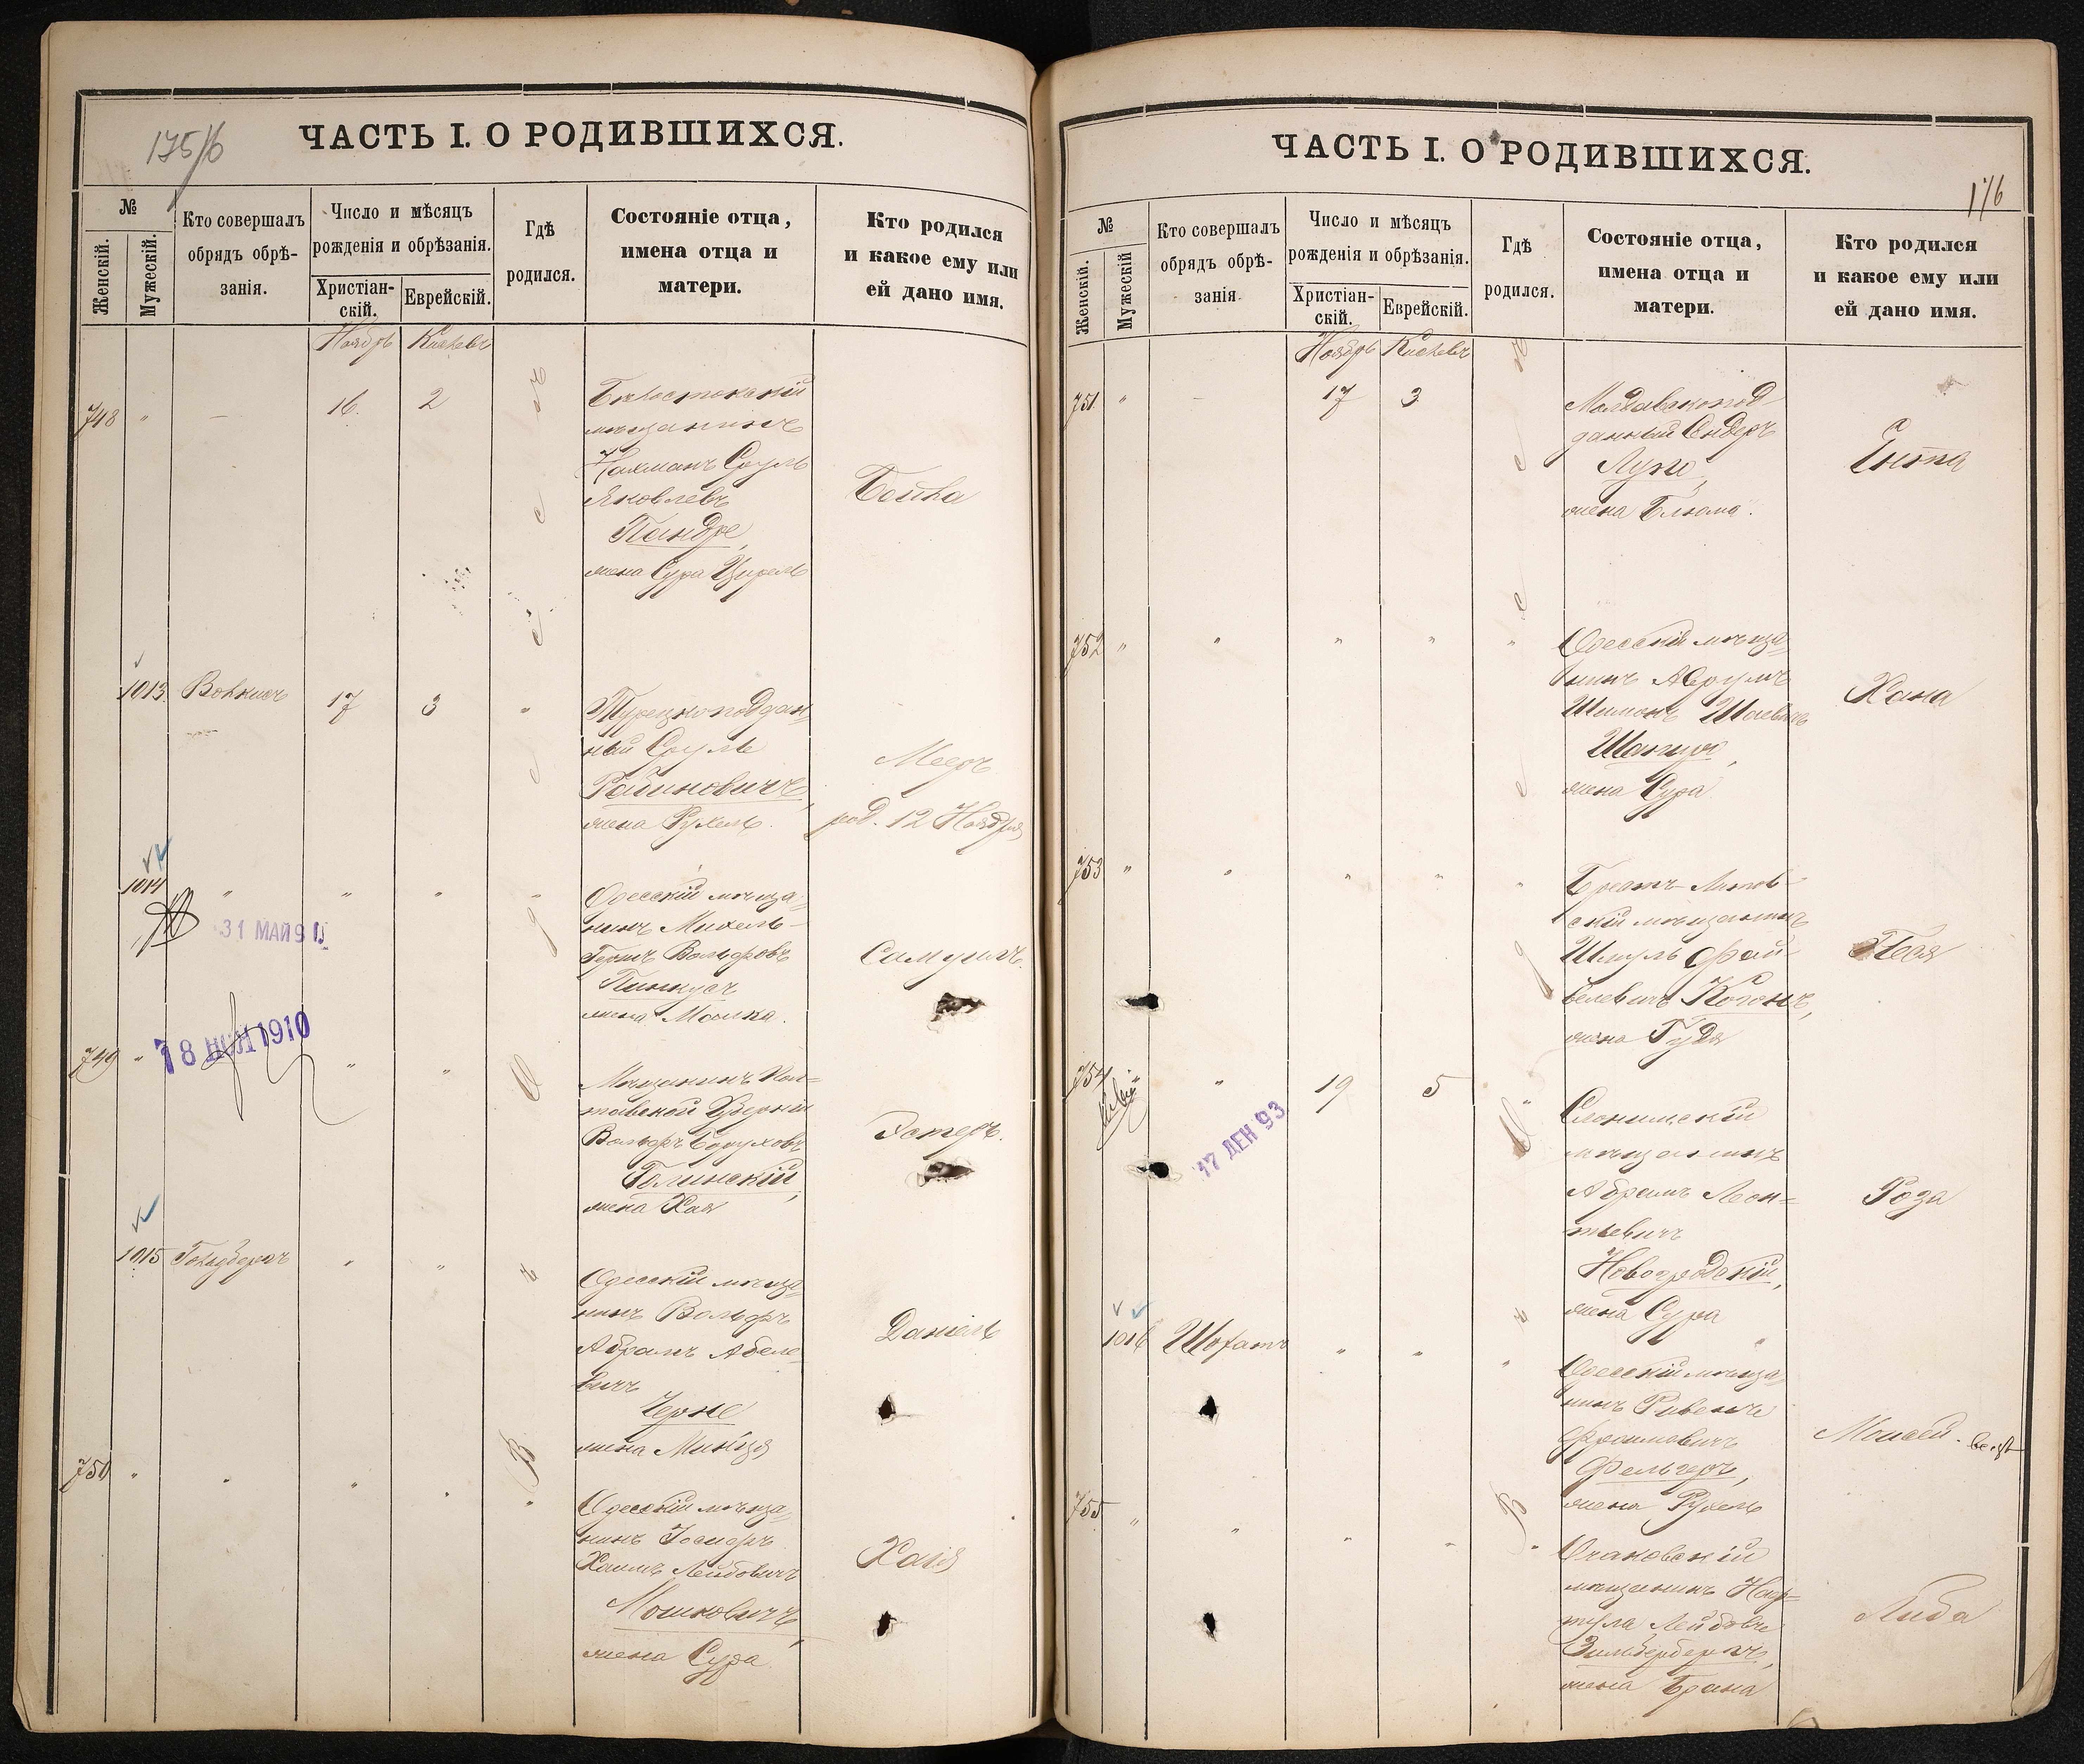 175/6
ЧАСТЬ I. О РОДИВШИХСЯ.
№
Женскій.
Мужескій.
Кто совершалъ
обрядъ обрѣ-
занія.
Число и мѣсяцъ
рожденія и обрѣзанія.
Христіан-
скій.
Еврейскій.
Гдѣ
родился.
Состояніе отца,
имена отца и
матери.
Кто родился
и какое ему или
ей дано имя.
Ноябрь Кислевъ
748 " — 16. 2
Бѣлостокскій
мѣщанинъ
Нахманъ Сруль
Яковлевъ
Пандре,
жена Сура Цирель
Бейла
1013 17 3 "
Турецкоподдан-
ный Сруль
Рабиновичъ,
жена Рухель.
Мееръ
род. 12 Ноября
1014 " " " "
31 МАЙ 9
Одесскій мѣща-
нинъ Михель-
Гершъ Вольфовъ
Пинкусъ
жена Малка.
Самуилъ.
749 " " "
18 1910
Мѣщанинъ Пол-
тавской Губерніи
Вольфъ Боруховъ
Голинскій,
жена Хая
Эстеръ.
1015 Гольдбергъ " "
Одесскій мѣща-
нинъ Вольфъ
Абрамъ Абеле-
вичъ
Черне
жена Миндя
Даніель
750 " " " " "
Одесскій мѣща-
нинъ Іосифъ
Хаимъ Лейбовичъ
Мошковичъ,
жена Сура
Хая
ЧАСТЬ I. О РОДИВШИХСЯ.
176
№
Женскій.
Мужескій
Кто совершалъ
обрядъ обрѣ-
занія
Число и мѣсяцъ
рожденія и обрѣзанія.
Христіан-
скій.
Еврейскій.
Гдѣ
родился.
Состояніе отца,
имена отца и
матери.
Кто родился
и какое ему или
ей дано имя.
Ноябрь Кислевъ
751. " — 17 3
Молдавскопод
данный Сндеръ
жена Блюма.
Ента
752 " " " " "
Одесскій мѣща-
нинъ Аврумъ
Шимонъ Шаевичъ
жена Сура
Хана
753 " " " " "
Брестъ-Литов-
скій мѣщанинъ
Шмуль Фай-
велевичъ Коганъ,
жена Гудя
Песя
754 " " 19 5 "
17 ДЕК 93
Слонимскій
мѣщанинъ
Абрамъ Леон-
тьевичъ
Новогродскій,
жена Сура
Роза
1016 Шохатъ " " "
Одесскій мѣща-
нинъ Рувенъ
Фроимовичъ
Фельгеръ,
жена Рухель
Моисей.
755 " " " " "
Очаковскій
мѣщанинъ Наф-
тула Лейбовъ
Зильбербергъ,
жена Брана
Либа